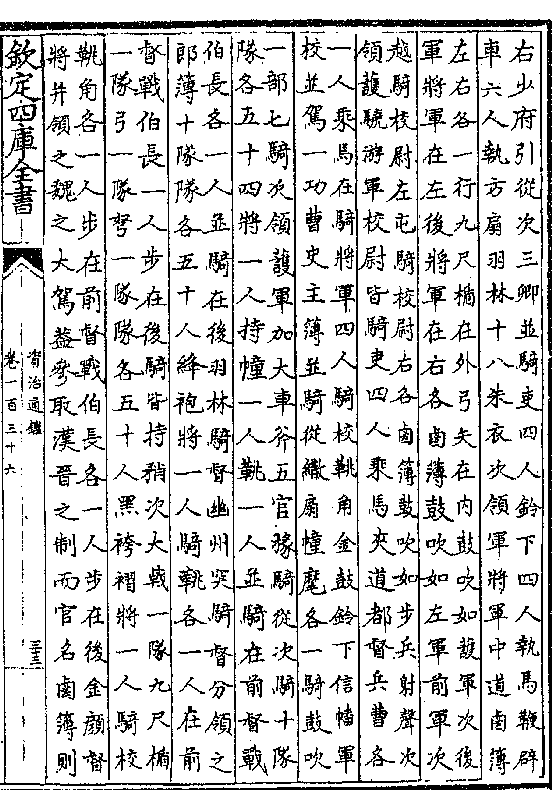 右少府引從次三卿並騎吏四人鈴下四人執馬鞭辟
車六人執方扇羽林十八朱衣次領軍將軍中道鹵簿
左右各一行九尺楯在外弓矢在內鼓吹如護軍次後
軍將軍在左後將軍在右各鹵簿鼓吹如左軍前軍次
越騎校尉左屯騎校尉右各鹵簿鼓吹如步兵射聲次
領護驍游軍校尉皆騎吏四人乘馬夾道都督兵曹各
一人乘馬在騎將軍四人騎校鞉角金鼓鈴下信幡軍
校並駕一功曹史主薄並騎從繖扇幢麾各一騎鼓吹
一部七騎次領護軍加大車斧五官掾騎從次騎十隊
隊各五十四將一人持幢一人鞉一人並騎在前督戰
伯長各一人並騎在後羽林騎督幽州突騎督分領之
郎薄十隊隊各五十人絳袍將一人騎鞉各一人在前
督戰伯長一人步在後騎皆持矟次大戟一隊九尺楯
一隊弓一隊弩一隊隊各五十人黑袴褶將一人騎校
鞉角各一人步在前督戰伯長各一人步在後金顔督
將并領之魏之大駕蓋參取漢晉之制而官名鹵簿則
欽定四庫全書
資治通鑑
卷一百三十六
三十三